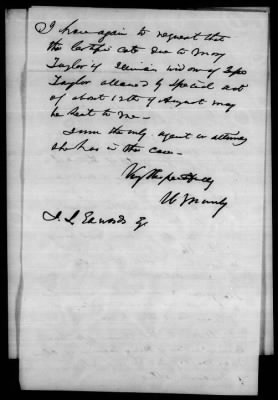 I have again to request that
the certificate due to Mary
Taylor of Illinois widow of
Taylor allowed by special act
of about 12th of August may
be sent to me -
I am the only agent or attorney
she has in the case -
Very Respectfully

J. L. Edwards Esq